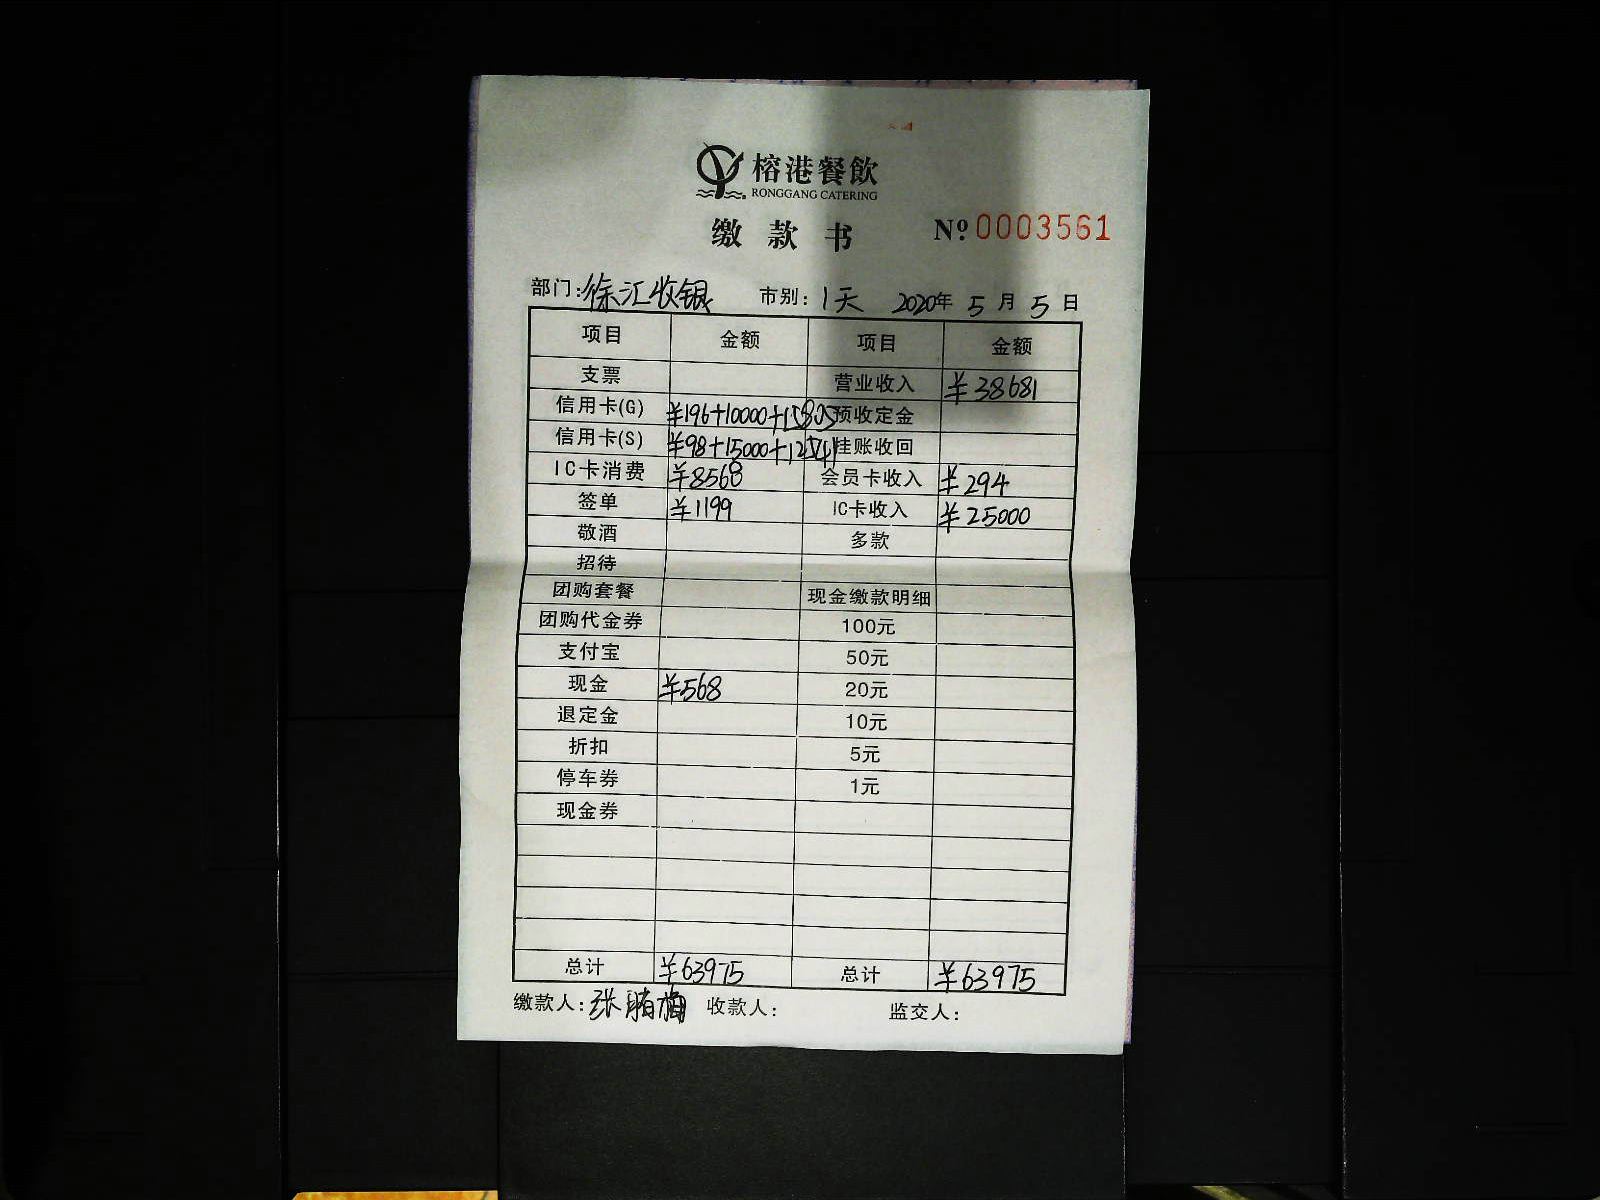 榕港餐飲
RONGGANG CATERING
缴款书 Nº 0003561
部门:徐汇收银 市别:1天 2020年5月5日
项目 金额 项目 金额
支票 营业收入 ¥38681
信用卡(G) ¥196+10000+15805 预收定金
信用卡(S) ¥98+15000+12541 挂账收回
IC卡消费 ¥8568 会员卡收入 ¥294
签单 ¥1199 IC卡收入 ¥25000
敬酒 多款
招待
团购套餐 现金缴款明细
团购代金券 100元
支付宝 50元
现金 ¥568 20元
退定金 10元
折扣 5元
停车券 1元
现金券
总计 ¥63975 总计 ¥63975
缴款人:张 梅 收款人: 监交人: